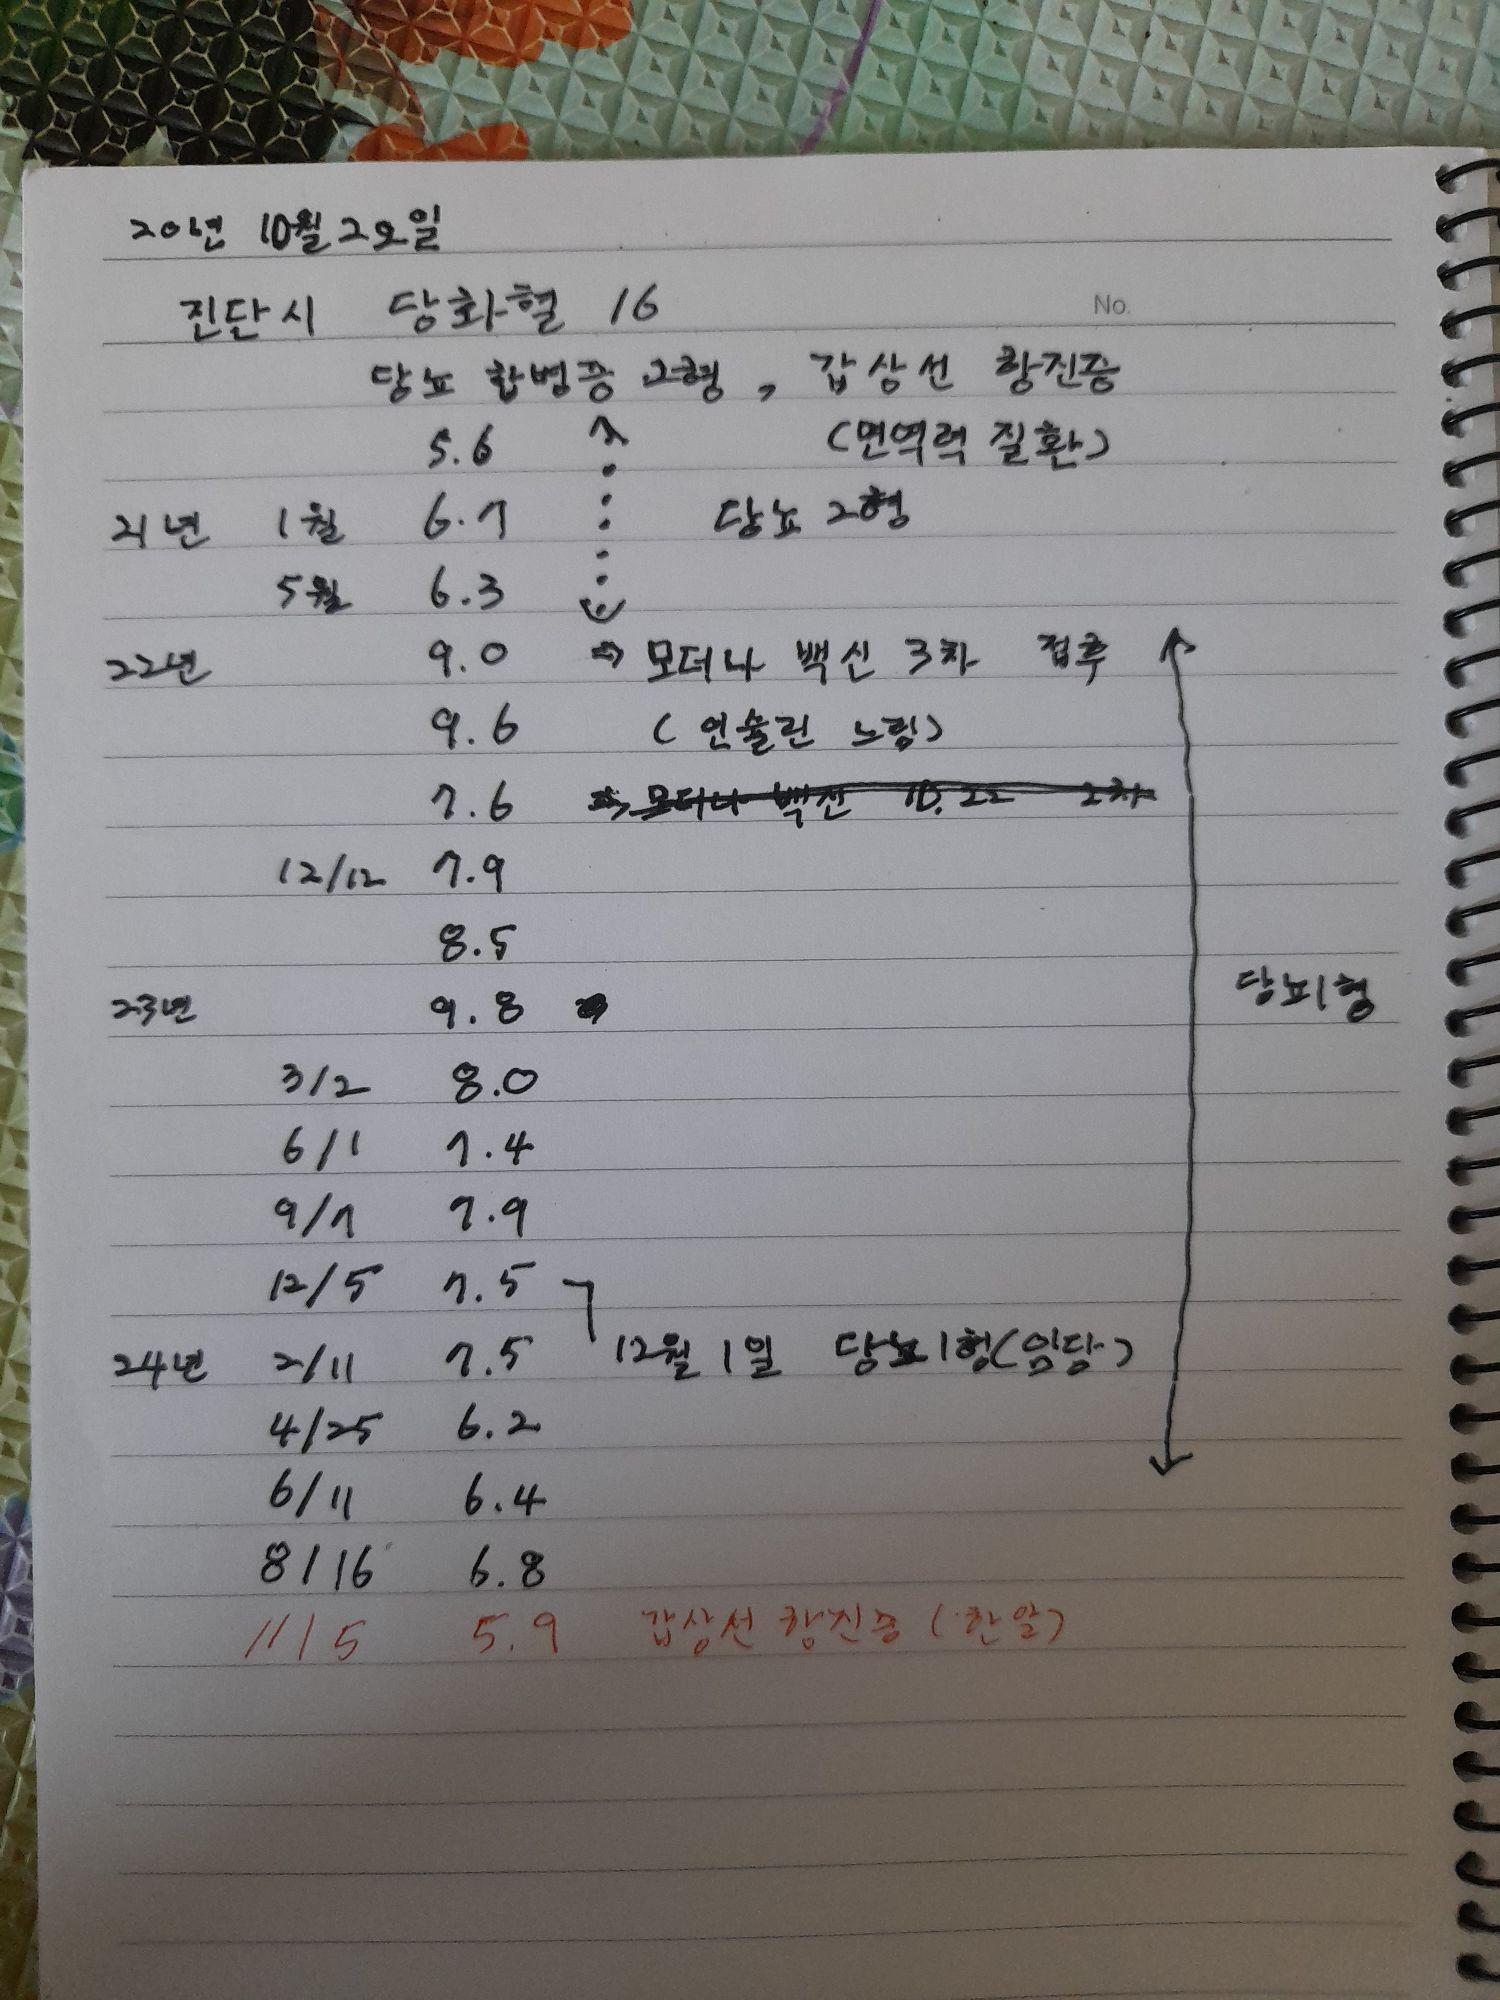 20년 10월 20일
진단시 당화혈 16
No.
당뇨 합병증 2형, 갑상선 항진증
5.6 (면역력 질환)
21년 1월 6.7 당뇨 2형
5월 6.3
22년 9.0 ⇒ 모더나 백신 3차 접후
9.6 (인슐린 느림)
7.6 ⇒ 모더나 백신 10.22 2차
12/12 7.9
8.5
23년 9.8 당뇨1형
3/2 8.0
6/1 7.4
9/7 7.9
12/5 7.5
24년 2/11 7.5 12월 1일 당뇨1형(임당)
4/25 6.2
6/11 6.4
8/16 6.8
11/5 5.9 갑상선 항진증 (한알)